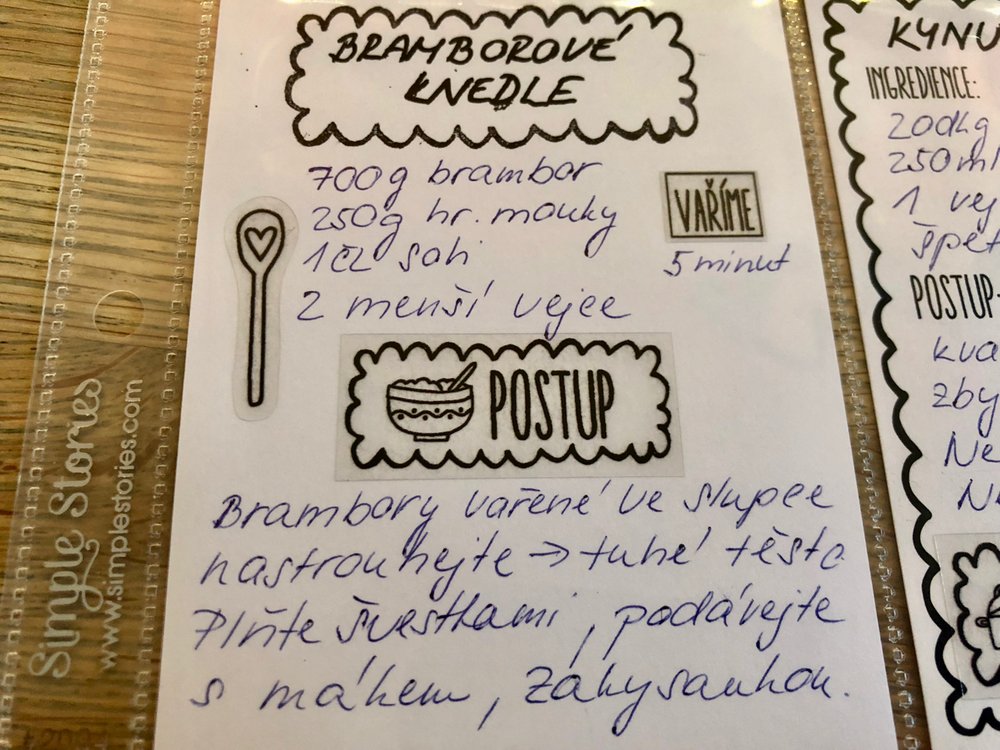 BRAMBOROVÉ
KNEDLE
700g brambor
250g hr. mouky
1čl soli
2 menší vejce
VAŘÍME
5 minut
POSTUP
Brambory vařené ve slupce
nastrouhejte → tuhé těsto
Plňte švestkami, podávejte
s mákem, zákysankou.
Simple Stories
www.simplestories.com
KYNU
INGREDIENCE:
200kg
250ml
1 vej
špet
POSTUP
kva
zby
Ne